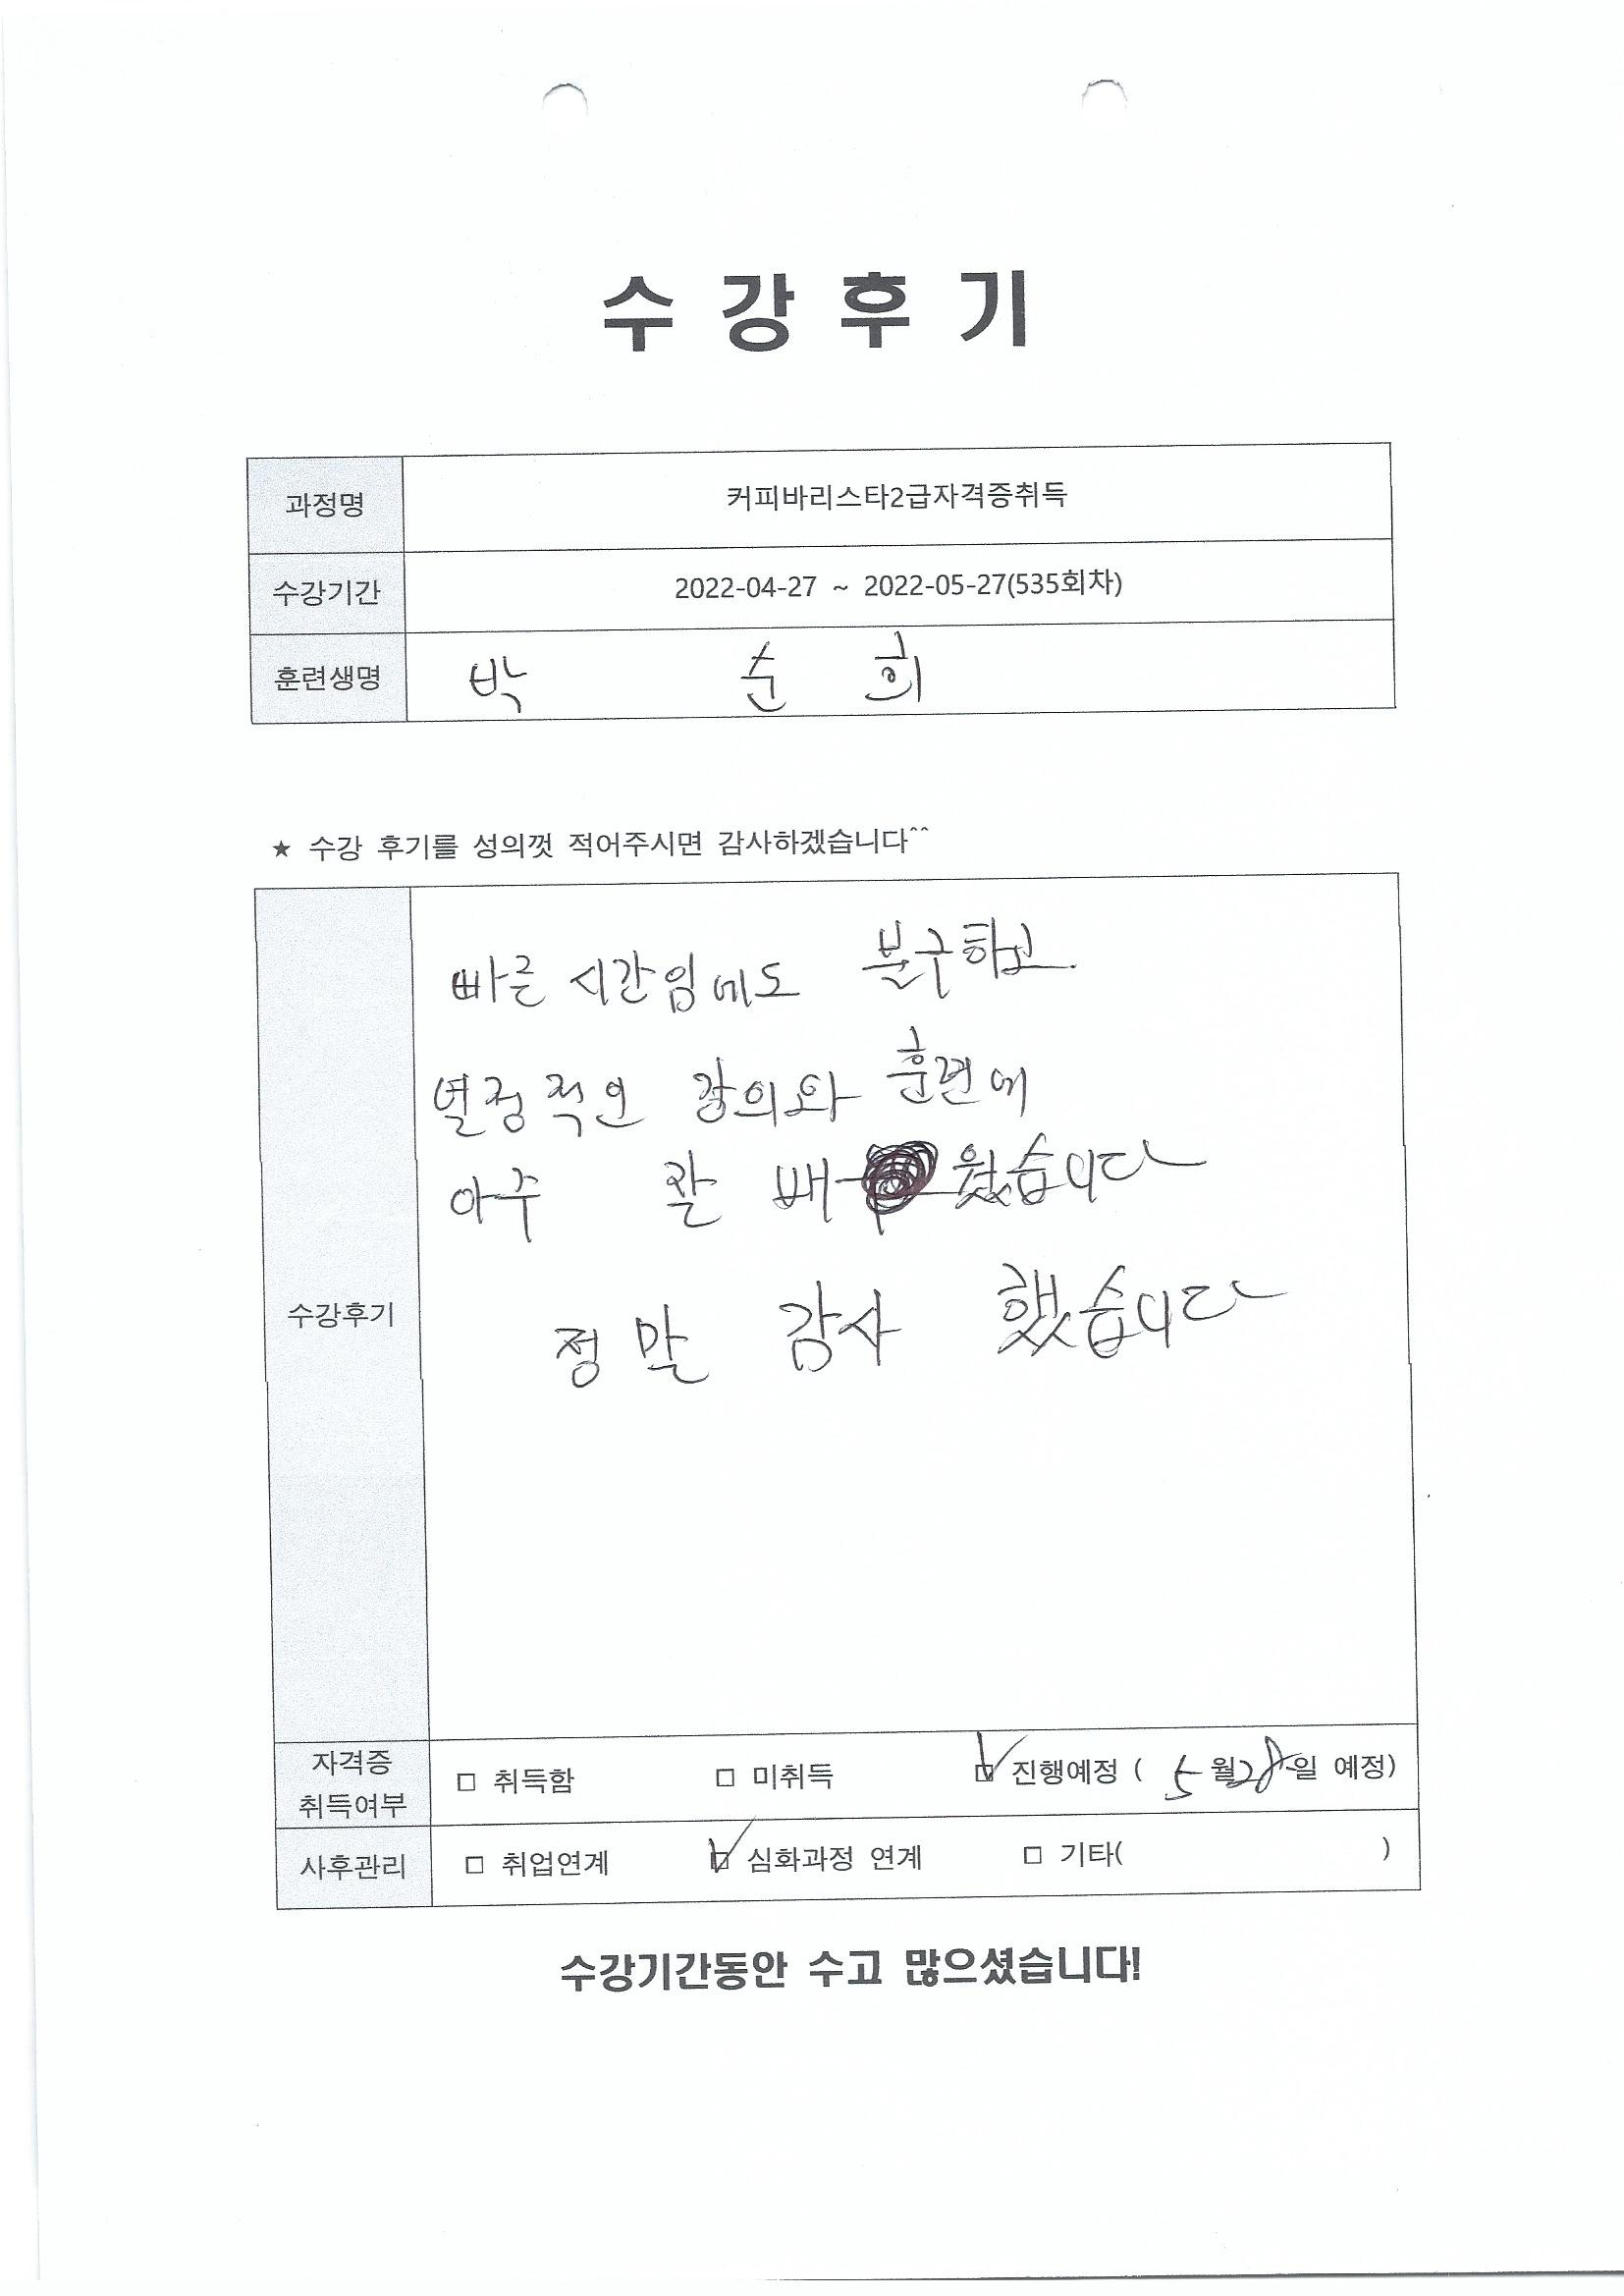 수 강 후 기
과정명 커피바리스타2급자격증취득
수강기간 2022-04-27 ~ 2022-05-27(535회차)
훈련생명 박 순 희
★ 수강 후기를 성의껏 적어주시면 감사하겠습니다^^
빠른 시간임에도 불구하고
열정적인 강의와 훈련에
아주 잘 배웠습니다
수강후기
정말 감사 했습니다
자격증
취득여부
□ 취득함 □ 미취득 ☑ 진행예정 ( 5월28일 예정)
사후관리 □ 취업연계 ☑ 심화과정 연계 □ 기타( )
수강기간동안 수고 많으셨습니다!